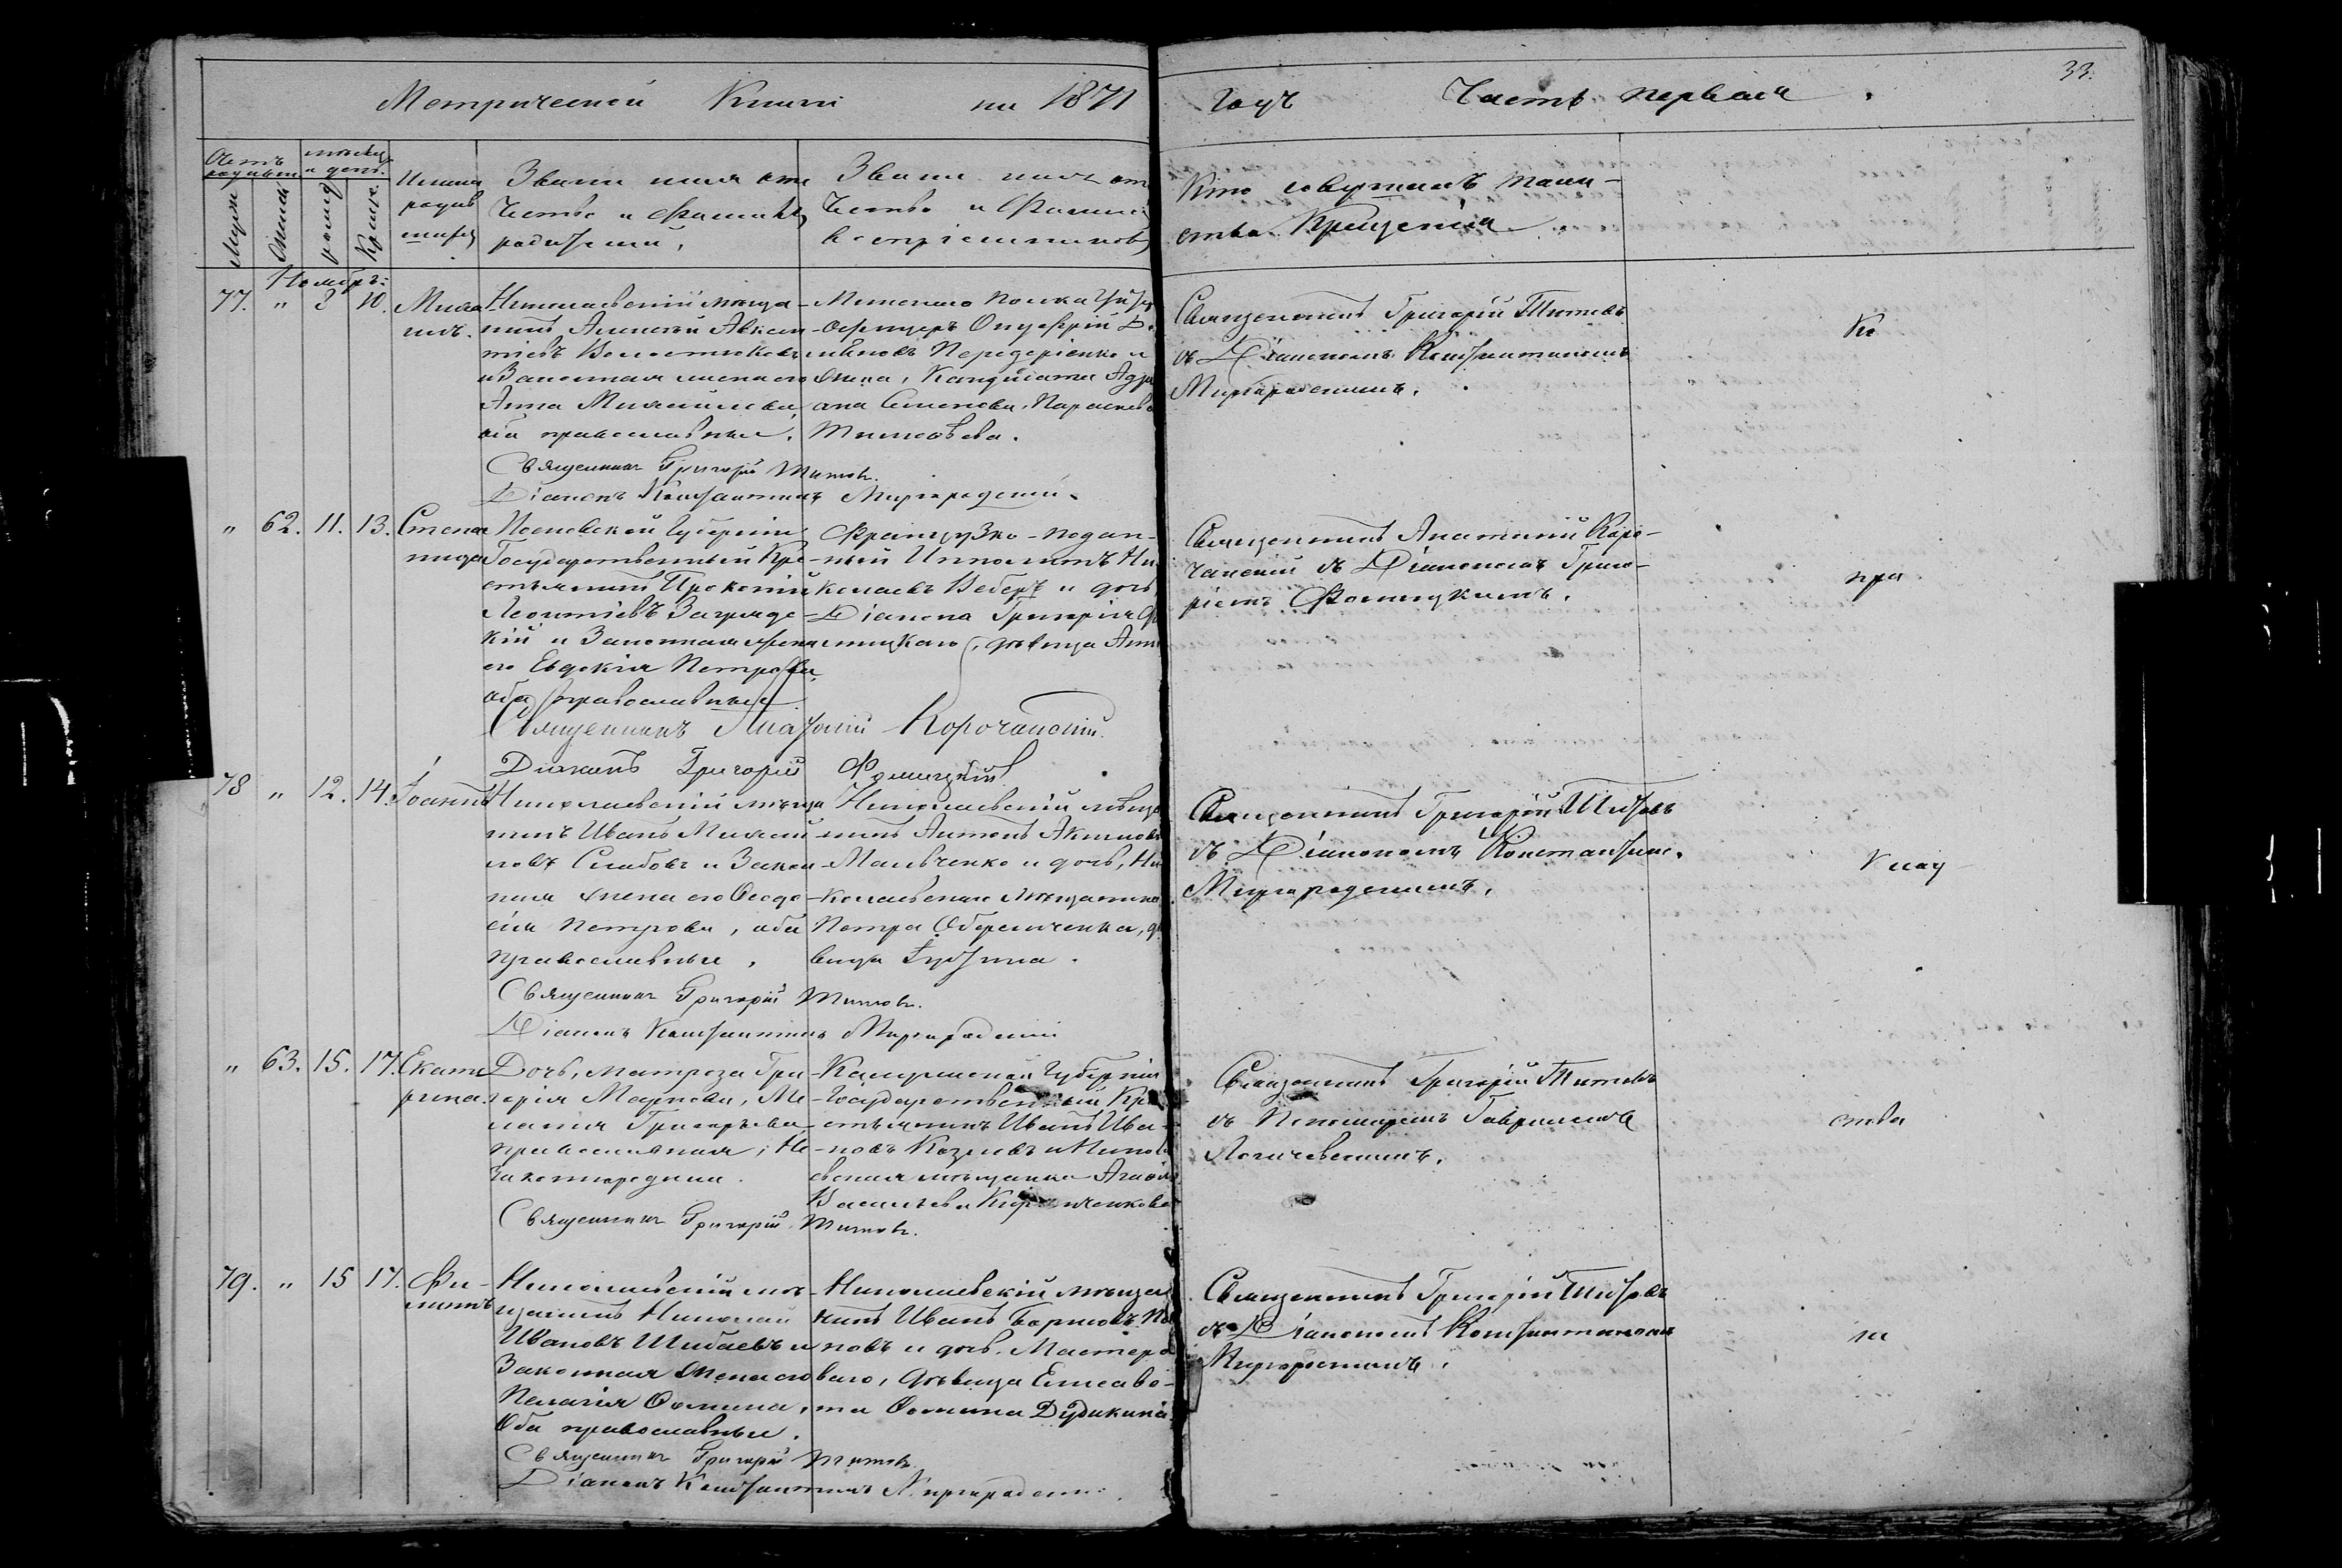 Метрической Книги на 1871
Годъ Часть первая.
33.
Счетъ родивш.
мѣсяцъ и день.
Мужск.
Женск.
рожд.
Крещ.
Имена
родив
шихся
Званіе имя отче
ство и Фамилія
родителей,
Званіе имя от
чество и Фамилія
воспріемниковъ
Кто совершалъ таин-
ство Крещенія
Ноябрь:
77. " 2 10. Миха
илъ.
Николаевскій мѣща-
нинъ Алексѣй Авксен-
тіевъ
и Законная жена его
Анна Михайлова
оба православные.
Онуфрій
и
жена, Кандидата Адрі
ана Семенова, Параскева
Тимоѳеева.
Священникъ Григорій Титовъ
съ Діакономъ Константиномъ
Миргородскимъ.
Ка
Священникъ Григорій Титовъ.
Діаконъ Константинъ Миргородскій.
" 62. 11. 13. Степа
нида
Губерніи
Государственный Кре-
стьянинъ Прокопій
Леонтіевъ Загряд
кій и Законная жена
его Евдокія Петрова,
оба православные
Французко-подан-
ный Ипполитъ Ни
колаевъ Веберъ и дочь
Діакона Григорія Фо
мицкаго, дѣвица Анна
Священникъ Анатолій Коро-
чанскій съ Діакономъ Григо-
ріемъ Фомицкимъ.
пра
Священникъ Анатолій Корочанскій.
Діаконъ Григорій Фомицкій
78 " 12. 14. Іоаннъ
Николаевскій мѣща
нинъ Иванъ Михай
ловъ Слабовъ и Закон
ная жена его Ѳеодо
сія Петрова, оба
православные.
Николаевскій мѣща
нинъ Антонъ Акимовъ
Мальченко и дочь, Ни
колаевскаго мѣщанина
Петра дѣ
вица Іустина.
Священникъ Григорій Титовъ
съ Діакономъ Константин.
Миргородскимъ.
Кіаў
Священникъ Григорій Титовъ.
Діаконъ Константинъ Миргородскій
" 63. 15. 17. Екате
рина.
Дочь, матроза Гри
горія Маркова, Ме
ланія Григорьева
православная; Не
законнорожден.
Калужской Губерніи
Государственный Кре
стьянинъ Иванъ Ива-
новъ Козловъ и Никола
евская мѣщанка Агафія
Васильева
Священникъ Григорій Титовъ
съ Пономаремъ Гавриломъ
Логачевскимъ.
ства
Священникъ Григорій Титовъ.
79. " 15 17. Фи-
липпъ
Николаевскій мѣ-
щанинъ Николай
Ивановъ Шибаевъ и
Законная жена его
Пелагія Ѳомина,
Оба православные.
Николаевскій мѣща
нинъ Иванъ Борисовъ По
повъ и дочь, Мастеро
ваго, дѣвица Елисаве-
та Ѳомина Дудикина.
Священникъ Григорій Титовъ
съ Діакономъ Константиномъ
Миргородскимъ.
ла
Священникъ Григорій Титовъ.
Діаконъ Константинъ Миргородскій.